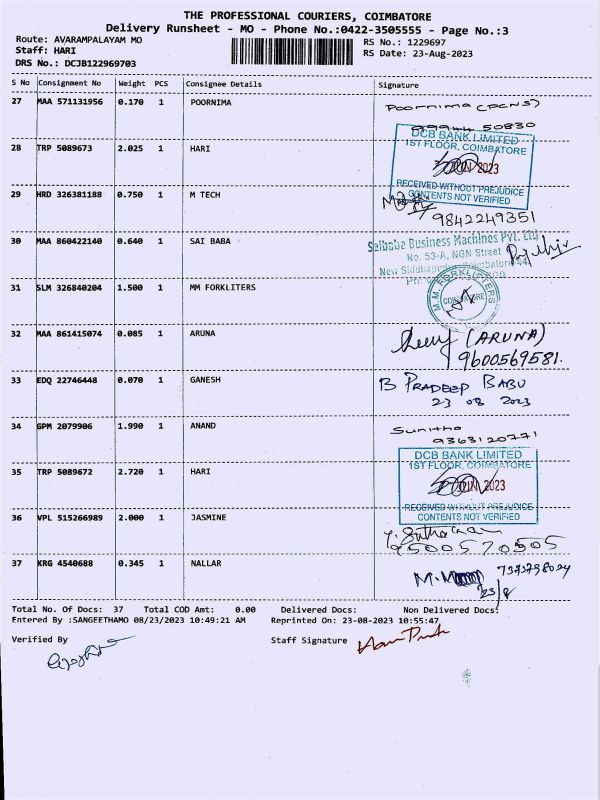 THE PROFESSIONAL COURIERS, COIMBATORE
Delivery Runsheet - MO - Phone No.:0422-3505555 - Page No.:3
Route: AVARAMPALAYAM MO
RS No.: 1229697
Staff: HARI
RS Date: 23-Aug-2023
DRS No.: DCJB122969703
S No Consignment No Weight PCS Consignee Details Signature
27 MAA 571131956 0.170 1 POORNIMA
Poornima
50830
28 TRP 5089673 2.025 1 HARI
DCB BANK LIMITED
1ST FLOOR, COIMBATORE
2023
RECEIVED WITHOUT PREJUDICE
CONTENTS NOT VERIFIED
29 HRD 326381188 0.750 1 M TECH
9842249351
30 MAA 860422140 0.640 1 SAI BABA
Saibaba Business Machines Pvt. Ltd
No. 53-A, NGN Street
31 SLM 326840204 1.500 1 MM FORKLITERS
M.M. FORKLIFTERS
COIMBATORE
32 MAA 861415074 0.085 1 ARUNA
(ARUNA)
9600569581.
33 EDQ 22746448 0.070 1 GANESH
B PRADEEP BABU
23 08 2023
34 GPM 2079906 1.990 1 ANAND
Sunitha
9363120771
35 TRP 5089672 2.720 1 HARI
DCB BANK LIMITED
1ST FLOOR, COIMBATORE
JUN 2023
RECEIVED WITHOUT PREJUDICE
CONTENTS NOT VERIFIED
36 VPL 515266989 2.000 1 JASMINE
9500570505
37 KRG 4540688 0.345 1 NALLAR
7373798024
23/8
Total No. Of Docs: 37 Total COD Amt: 0.00 Delivered Docs: Non Delivered Docs:
Entered By :SANGEETHAMO 08/23/2023 10:49:21 AM Reprinted On: 23-08-2023 10:55:47
Verified By Staff Signature